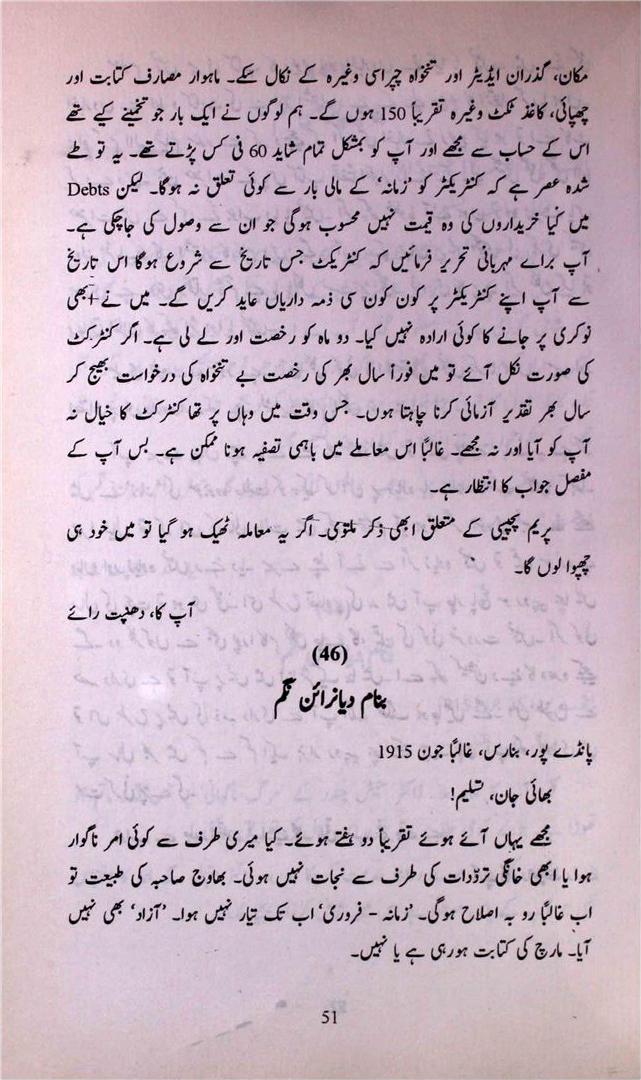 مکان، گذران ایڈیٹر اور تنخواہ چپراسی وغیرہ کے نکال سکے۔ ماہوار مصارف کتابت اور
چھپائی، کاغذ ٹکٹ وغیرہ تقریباً 150 ہوں گے۔ ہم لوگوں نے ایک بار جو تخمینے کیے تھے
اس کے حساب سے مجھے اور آپ کو بمشکل تمام شاید 60 فی کس پڑتے تھے۔ یہ تو طے
شدہ عصر ہے کہ کنٹریکٹر کو ’زمانہ‘ کے مالی بار سے کوئی تعلق نہ ہوگا۔ لیکن Debts
میں کیا خریداروں کی وہ قیمت نہیں محسوب ہوگی جو ان سے وصول کی جاچکی ہے۔
آپ براے مہربانی تحریر فرمائیں کہ کنٹریکٹ جس تاریخ سے شروع ہوگا اس تاریخ
سے آپ اپنے کنٹریکٹر پر کون کون سی ذمہ داریاں عاید کریں گے۔ میں نے ابھی
نوکری پر جانے کا کوئی ارادہ نہیں کیا۔ دو ماہ کو رخصت اور لے لی ہے۔ اگر کنٹرکٹ
کی صورت نکل آئے تو میں فوراً سال بھر کی رخصت بے تنخواہ کی درخواست بھیج کر
سال بھر تقدیر آزمائی کرنا چاہتا ہوں۔ جس وقت میں وہاں پر تھا کنٹرکٹ کا خیال نہ
آپ کو آیا اور نہ مجھے۔ غالباً اس معاملے میں باہمی تصفیہ ہونا ممکن ہے۔ بس آپ کے
مفصل جواب کا انتظار ہے۔
پریم پچیسی کے متعلق ابھی ذکر ملتوی۔ اگر یہ معاملہ ٹھیک ہو گیا تو میں خود ہی
چھپوا لوں گا۔
آپ کا، دھنپت رائے
(46)
بنام دیانرائن نگم
پانڈے پور، بنارس، غالباً جون 1915
بھائی جان، تسلیم!
مجھے یہاں آئے ہوئے تقریباً دو ہفتے ہوئے۔ کیا میری طرف سے کوئی امر ناگوار
ہوا یا ابھی خانگی تردّدات کی طرف سے نجات نہیں ہوئی۔ بھاوج صاحبہ کی طبیعت تو
اب غالباً رو بہ اصلاح ہوگی۔ ’زمانہ - فروری‘ اب تک تیار نہیں ہوا۔ ’آزاد‘ بھی نہیں
آیا۔ مارچ کی کتابت ہورہی ہے یا نہیں۔
51